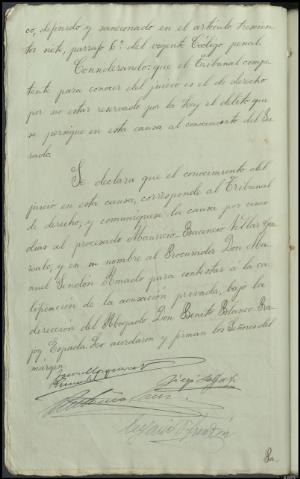 co, definido y sancionado en el artículo trescien
tos siete, parrafo 6º del vigente Código penal.
Considerando: que el Tribunal compe
tente para conocer del juicio es el de derecho
por no estar reservado por la Ley el delito que
se persigue en esta causa al conocimiento del Ju-
rado.
Se declara que el conocimiento del
juicio en esta causa, corresponde al Tribunal
de derecho, y comuníquese la causa por cinco
dias al procesado Mauricio Bacarisse
y en su nombre al Procurador Don Ma-
nuel Rendón Amado para contestar á la ca-
lificación de la acusación privada, bajo la
dirección del Abogado Don Benito Blanco Ra-
joy Espada. Lo acordaron y firman los Señores del
márgen